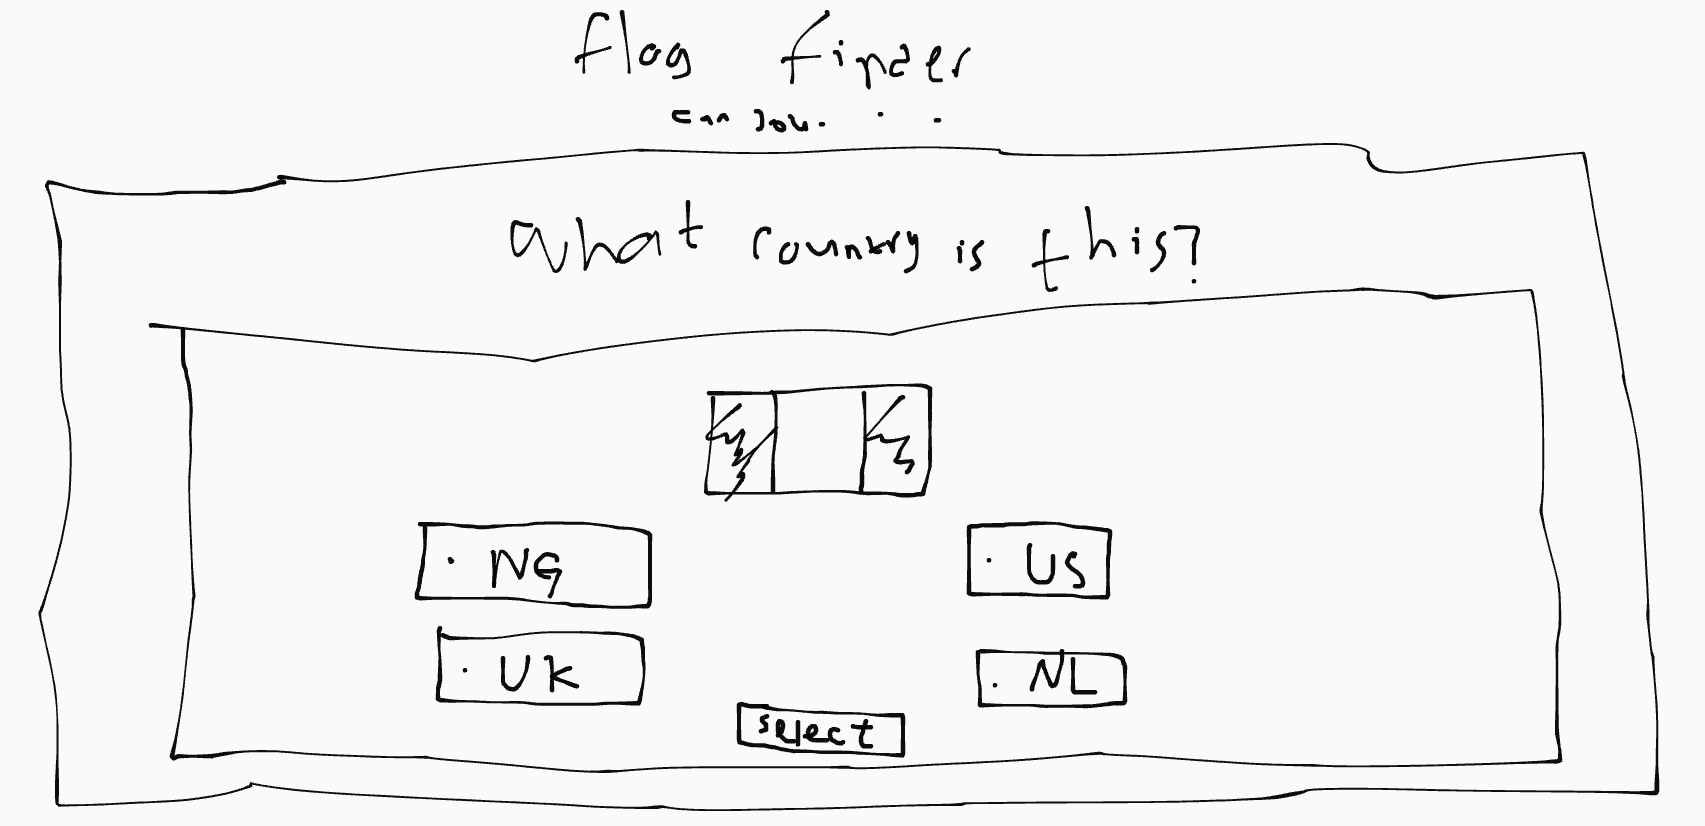 flag finder
can you. . .
What country is this?
NG
US
UK
NL
select